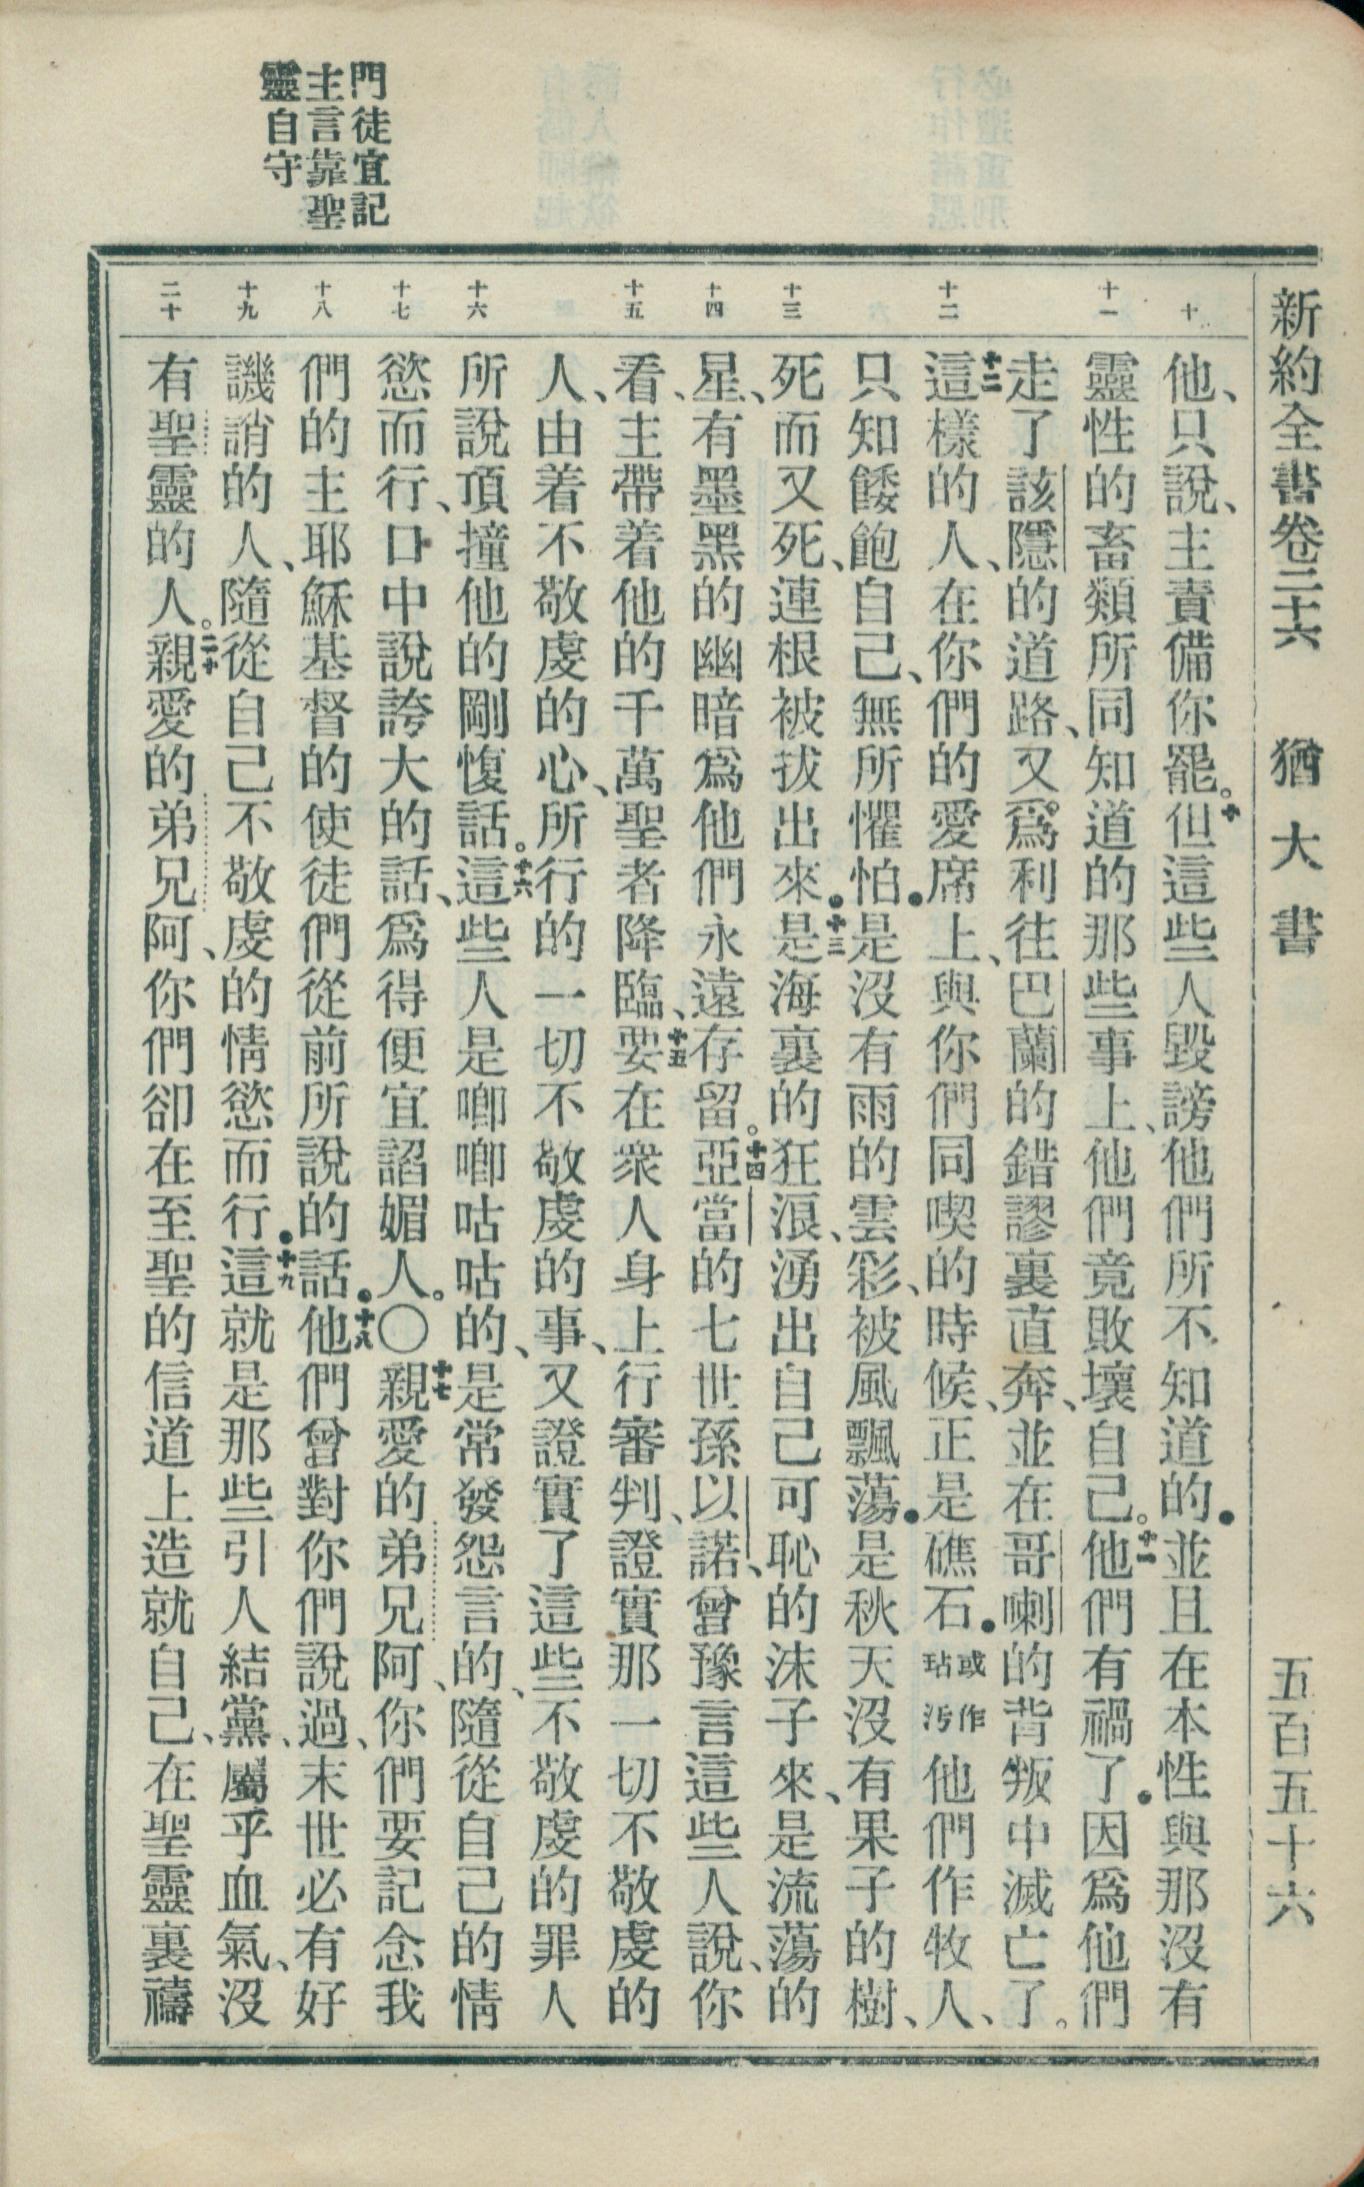 新約全書卷二十六 猶大書 五百五十六
門徒宜記
主言靠聖
靈自守
十 十一 十二 十三 十四 十五 十六 十七 十八 十九 二十
他、只說、主責備你罷。十但這些人毀謗他們所不知道的．並且在本性與那沒有
靈性的畜類所同知道的那些事上、他們竟敗壞自己。十一他們有禍了．因爲他們
走了該隱的道路、又爲利往巴蘭的錯謬裏直奔、並在哥喇的背叛中滅亡了。
十二這樣的人、在你們的愛席上、與你們同喫的時候、正是礁石．或作玷污他們作牧人、
只知餧飽自己、無所懼怕．是沒有雨的雲彩、被風飄蕩．是秋天沒有果子的樹、
死而又死、連根被拔出來．十三是海裏的狂浪、湧出自己可恥的沫子來、是流蕩的
星、有墨黑的幽暗爲他們永遠存留。十四亞當的七世孫以諾、曾豫言這些人說、你
看、主帶着他的千萬聖者降臨、十五要在衆人身上行審判、證實那一切不敬虔的
人、由着不敬虔的心、所行的一切不敬虔的事、又證實了這些不敬虔的罪人
所說頂撞他的剛愎話。十六這些人是喞喞咕咕的、是常發怨言的、隨從自己的情
慾而行、口中說誇大的話、爲得便宜諂媚人。〇十七親愛的弟兄阿、你們要記念我
們的主耶穌基督的使徒們從前所說的話．十八他們曾對你們說過、末世必有好
譏誚的人、隨從自己不敬虔的情慾而行．十九這就是那些引人結黨、屬乎血氣、沒
有聖靈的人。二十親愛的弟兄阿、你們卻在至聖的信道上造就自己、在聖靈裏禱